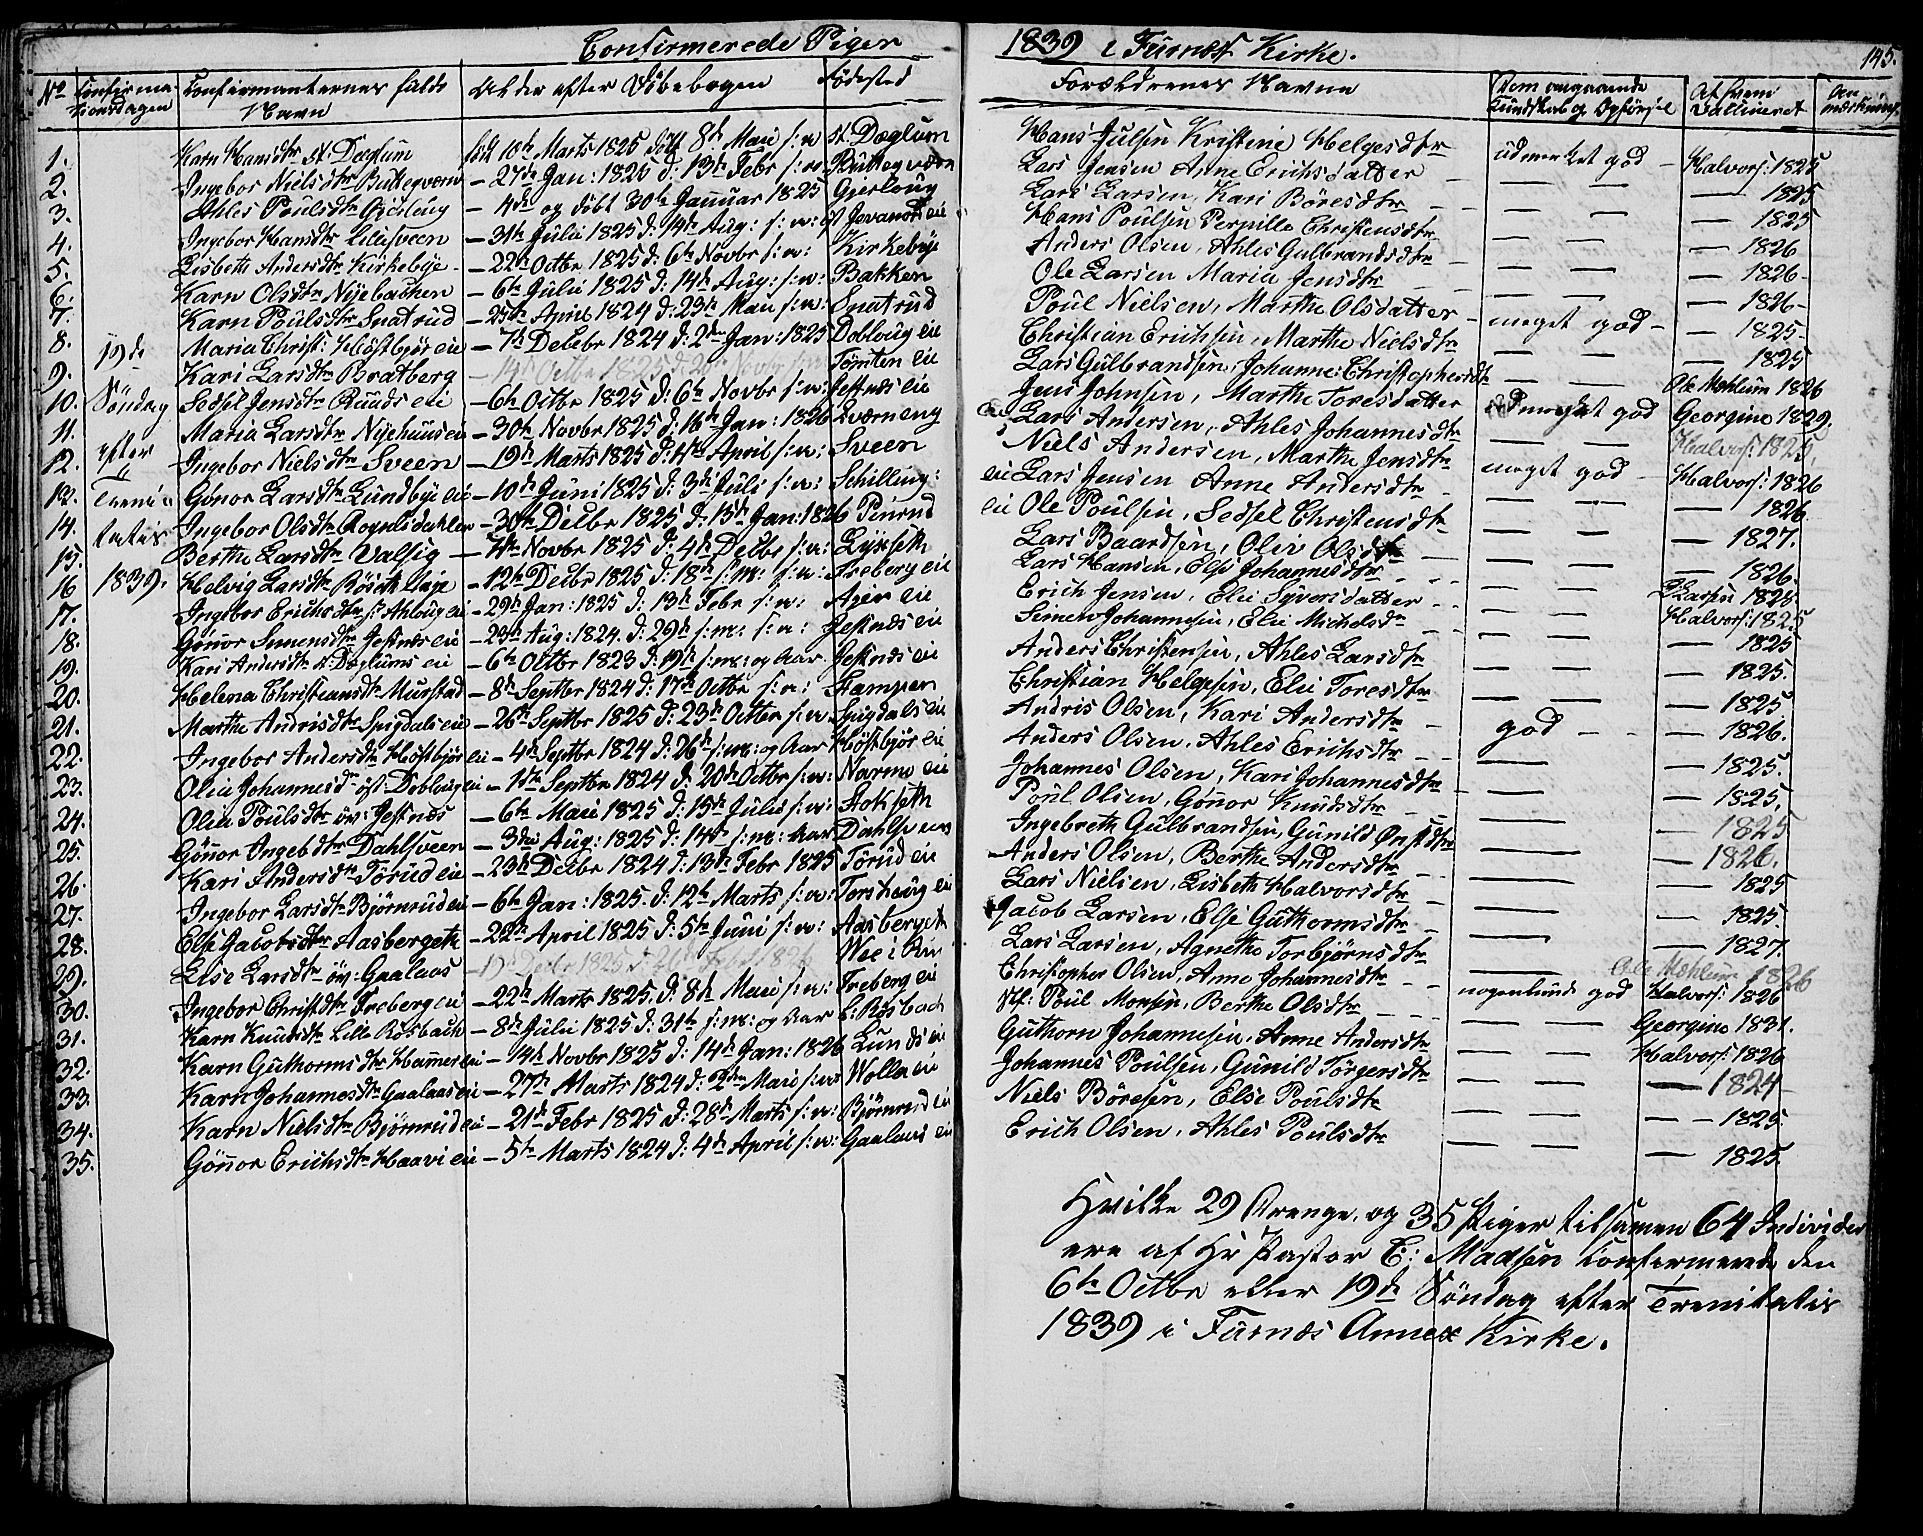 Confirmerede Piger 1839 i Furnæs Kirke. 145.
No Confirmationsdagen Confirmanternes fulde Navn Alder efter Döbebogen Födested Forældrenes Navne Dom angaaende Kundskab og Opförsel Af hvem Vaccineret Anmærkning
1. Karn Hansdtr st: Dæglum föd 10de Marts 1825 döbt 8de Mai s: a: st. Dæglum Hans Julsen Kristine Helgesdtr udmerket god Halvors: 1825
2. Ingebor Nielsdtr Butteqværn — 27de Jan: 1825 d: 13de Febr s: a: Butteqværn Lars Jensen Anne Erichsdatter — — — 1825
3. Ahles Poulsdtr — 4de og döbt 30te Januar 1825 Gjerloug Lars Larsen, Kari Böresdtr — — — 1825
4. Ingebor Hansdtr Lillesveen — 31te Julii 1825 d: 14de Aug: s: a: Hans Poulsen Pernille Christensdtr — — — 1826
5. Lisbeth Andersdtr Kirkebye — 22de Octbr 1825 d: 6te Novbr s: a: Kirkebye Anders Olsen, Ahles Gulbrandsdtr — — — 1826
6. Karn Olsdtr Nyebachen — 6te Julii 1825 d: 14de Aug: s: a: Bakken Ole Larsen Maria Jensdtr — — — 1826
7. Karn Poulsdtr Snatrud — 25de April 1824 d: 23de Mai s: a: Snatrud Poul Nielsen, Marthe Olsdatter meget god — 1825
8. Maria Christ: Höstbjör eie — 7de Decbr 1824 d: 2den Jan: 1825 Dobloug eie Christian Erichsen, Marthe Nielsdtr — — — 1825
9. 19de Kari Larsdtr Bratberg — 14de Octbr 1825 d: 20de Novbr Tömten eie Lars Gulbrandsen, Johanne Christophersdtr — — Ole Mehlum 1826
10. Söndag Sedsel Jensdtr Ruuds eie — 6te Octbr 1825 d: 6te Novbr s: a: Jesnæs eie Jens Johnsen, Marthe Toresdatter udmerket god Georgine 1829.
11. Maria Larsdtr Nyehuus eie — 30te Novbr 1825 d: 16de Jan: 1826 Qværneng eie Lars Andersen, Ahles Johannesdtr — — Halvors: 1825
12. efter Ingebor Nielsdtr Sveen — 19de Marts 1825 d: 4de April s: a: Sveen Niels Andersen, Marthe Jensdtr meget god Halvors: 1826
12. Treni- Gönor Larsdtr Lundbye eie — 10de Juni 1825 d: 3de Juli s: a: Schilling: eie Lars Jensen Anne Andersdtr — — — 1826
14. tatis Ingebor Olsdtr — 30te Decbr 1825 d: 15de Jan: 1826 Pinrud eie Ole Poulsen, Sedsel Christensdtr — — — 1827.
15. Berthe Larsdtr Valsig — 4de Novbr 1825 d: 4de Decbr s: a: Lars Baardsen, Oliv Olsdtr — — — 1826.
16 1839. Helvig Larsdtr — 12te Decbr 1825 d: 18de s: m: s: a: Freberg eie Lars Hansen, Else Johannesdtr — — 1825
17. Ingebor Erichsdtr — 29de Jan: 1825 d: 13de Febr s: a: Ajer eie Erich Jensen, Elie Syversdatter — — Halvors: 1825
18. Gönor Simensdtr Jesnæs eie — 23de Aug: 1824. d: 29de s: m: s: a: Jesnæs eie Simen Johannesen, Elie Michelsdtr — — — 1825
19. Kari Andersdtr st: Dæglums eie — 6te Octbr 1823 d: 19de s: m: og Aar Jesnæs eie Anders Christensen, Ahles Larsdtr — — — 1825.
20. Helena Christiansdtr Murstad — 8de Septbr 1824 d: 17de Octbr s: a: Stampen Christian Helgesen, Elie Toresdtr — — — 1825
21. Marthe Andrisdtr Spigdals eie — 26de Septbr 1825 d: 23de Octbr s: a: Spigdals eie Andris Olsen, Kari Andersdtr god — — — 1826.
22. Ingebor Andersdtr Höstbjör eie — 4de Septbr 1824 d: 26de s: m: og Aar Höstbjör eie Anders Olsen, Ahles Erichsdtr — — 1825.
23. Olia Johannesdtr öst Dobloug eie — 1ste Septbr 1824 d: 20de Octbr s: a: Narmo eie Johannes Olsen, Kari Johannesdtr — — 1825.
24. Olia Poulsdtr öv: Jesnæs — 6te Mai 1825 d: 15de Julii s: a: Stokseth Poul Olsen, Gönor Knudsdtr — — 1825
25. Gönor Ingebdtr Dahlsveen — 3die Aug: 1825 d: 14de s: m: Aar Dahlsveen Ingebreth Gulbrandsen, Gunild — — 1826.
26. Kari Andersdtr Törud eie — 23de Decbr 1824 d: 13de Febr 1825 Törud eie Anders Olsen, Berthe Andersdtr — — 1825
27. Ingebor Larsdtr Björnrud eie — 6te Jan: 1825. d: 12te Marts s: a: Torshaug eie Lars Nielsen, Lisbeth Halvorsdtr — — 1825.
28. Else Jacobsdtr Aasbergeth — 22de April 1825 d: 5te Juni s: a: Aasbergeth Jacob Larsen, Else Guthormsdtr — — 1827.
29. Lise Larsdtr öv: Gaalaas — 19de Decbr 1825 d: 26de Febr 1826 Lars Larsen, Agnethe Torbjörnsdtr — Ole Mehlum 1826
30. Ingebor Christdtr Freberg eie — 22de Marts 1825. d: 8de Mai s: a: Freberg eie Christopher Olsen, Anne Johannesdtr nogenlunde god Halvors: 1826
31. Karn Knudsdtr Lille Rösbach — 8de Julii 1825 d: 31te s: m: og Aar L: Rösbach Poul Monsen, Berthe Olsdtr — — Georgine 1831.
32. Karn Guthormsdtr Hamer eie — 14de Novbr 1825 d: 14de Jan: 1826 Lunds eie Guthorn Johannesen, Anne Andersdtr — — Halvors: 1826
33. Karn Johannesdtr Gaalaas eie — 27de Marts 1824 d: 2den Mai s: a: Wolla eie Johannes Poulsen, Gunild Törgersdtr — — — 1824
34. Karn Nielsdtr Björnrud eie — 21de Febr 1825 d: 28de Marts s: a: Björnrud eie Niels Böresen, Else Poulsdtr — — — 1825
35. Gönnor Erichsdtr Haavi eie — 5te Marts 1824 d: 4de April s: a: Gaalaas eie Erich Olsen, Ahles Poulsdtr — — — 1825.
Hvilke 29 Drenge, og 35 Piger tilsamen 64 Individer
ere af Hr Pastor E: Madsen Confirmerede den
6te Octbr eller 19de Söndag efter Trenitatis
1839 i Furnæs Annex Kirke.